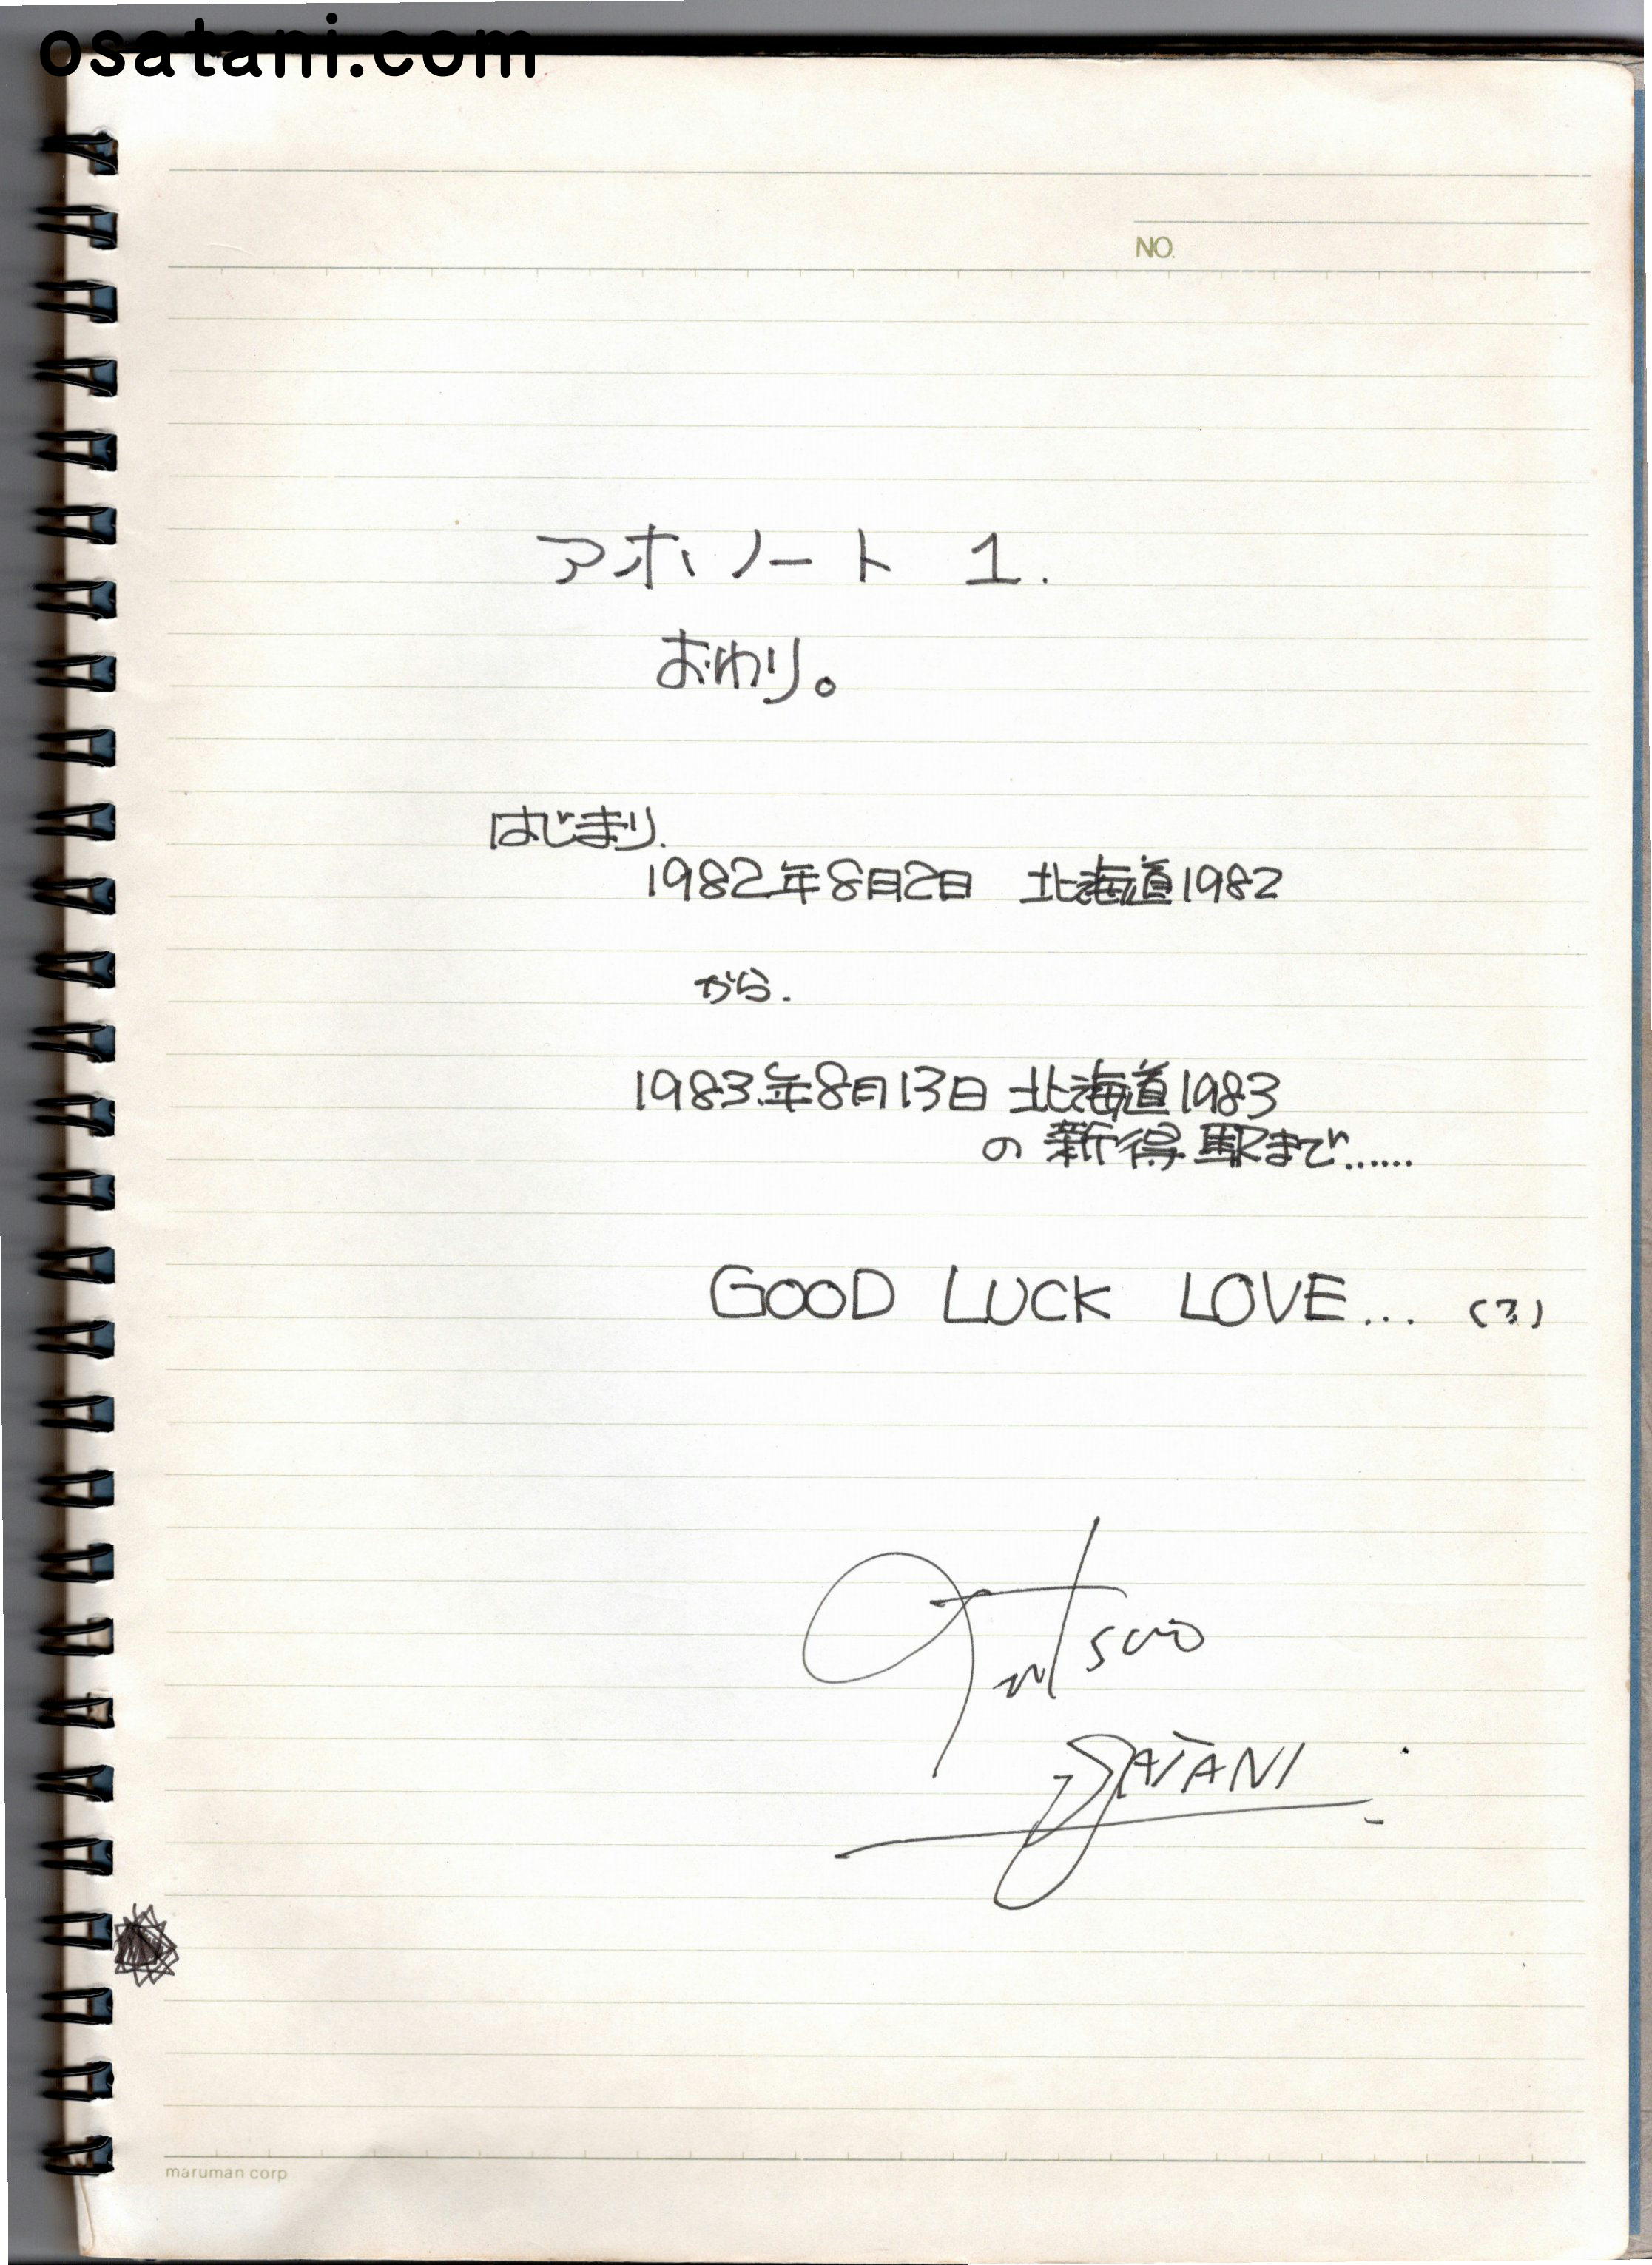 osatani.com
NO.
アホノート 1.
おわり。
はじまり.
1982年8月2日 北海道1982
から.
1983.年8月13日 北海道1983
の新得駅まで......
GOOD LUCK LOVE... (?)
SATANI
maruman corp